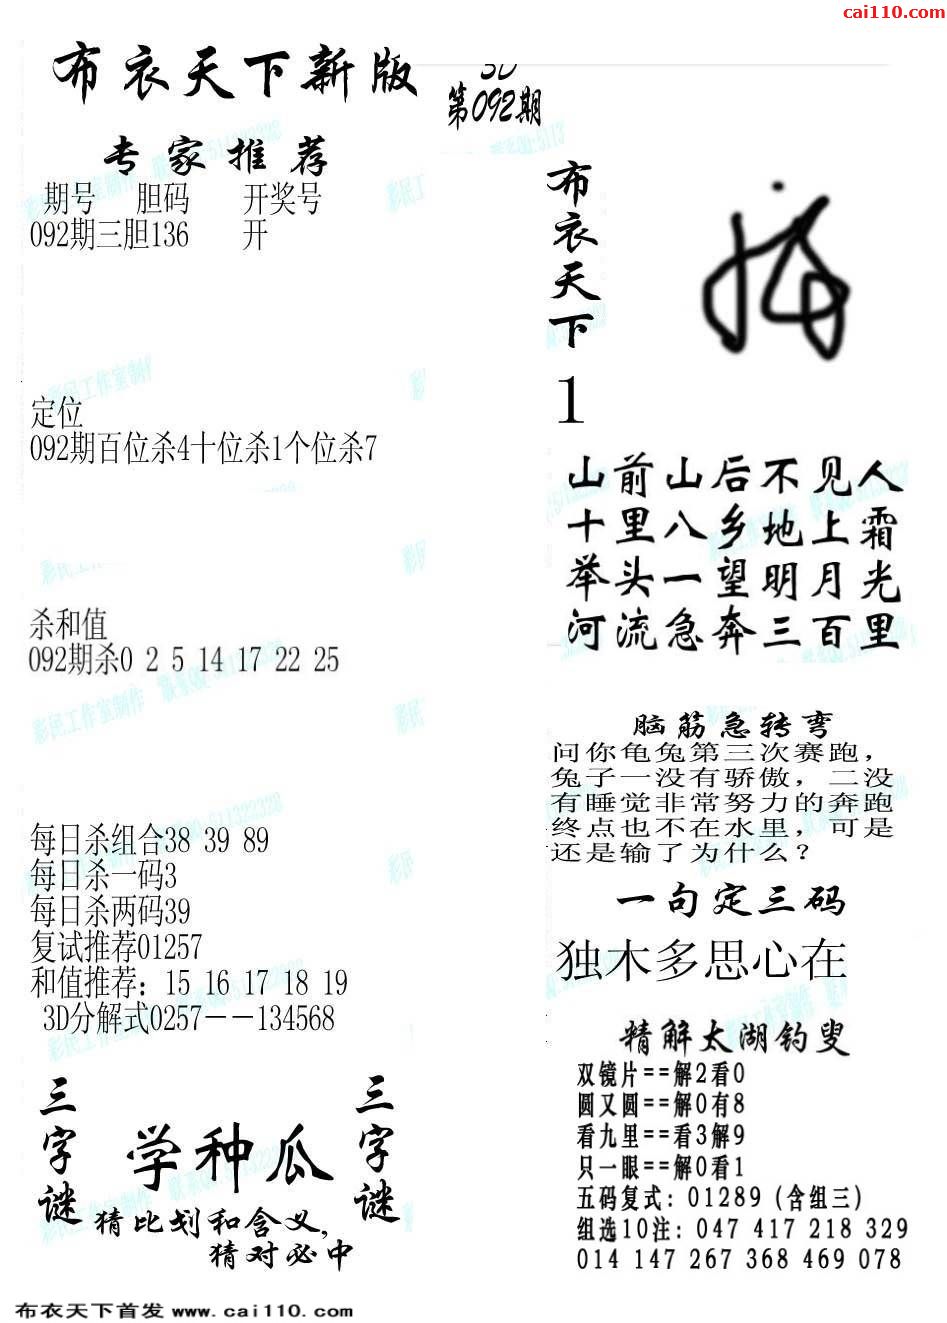 cai110.com
布衣天下新版
3D
第092期
专家推荐
期号 胆码 开奖号
092期三胆136 开
定位
092期百位杀4十位杀1个位杀7
杀和值
092期杀0 2 5 14 17 22 25
每日杀组合38 39 89
每日杀一码3
每日杀两码39
复试推荐01257
和值推荐：15 16 17 18 19
3D分解式0257－－134568
三字谜
学种瓜
三字谜
猜比划和含义,
猜对必中
布衣天下
1
山前山后不见人
十里八乡地上霜
举头一望明月光
河流急奔三百里
脑筋急转弯
问你龟兔第三次赛跑，
兔子一没有骄傲，二没
有睡觉非常努力的奔跑
终点也不在水里，可是
还是输了为什么？
一句定三码
独木多思心在
精解太湖钓叟
双镜片==解2看0
圆又圆==解0有8
看九里==看3解9
只一眼==解0看1
五码复式：01289（含组三）
组选10注：047 417 218 329
014 147 267 368 469 078
布衣天下首发 www.cai110.com